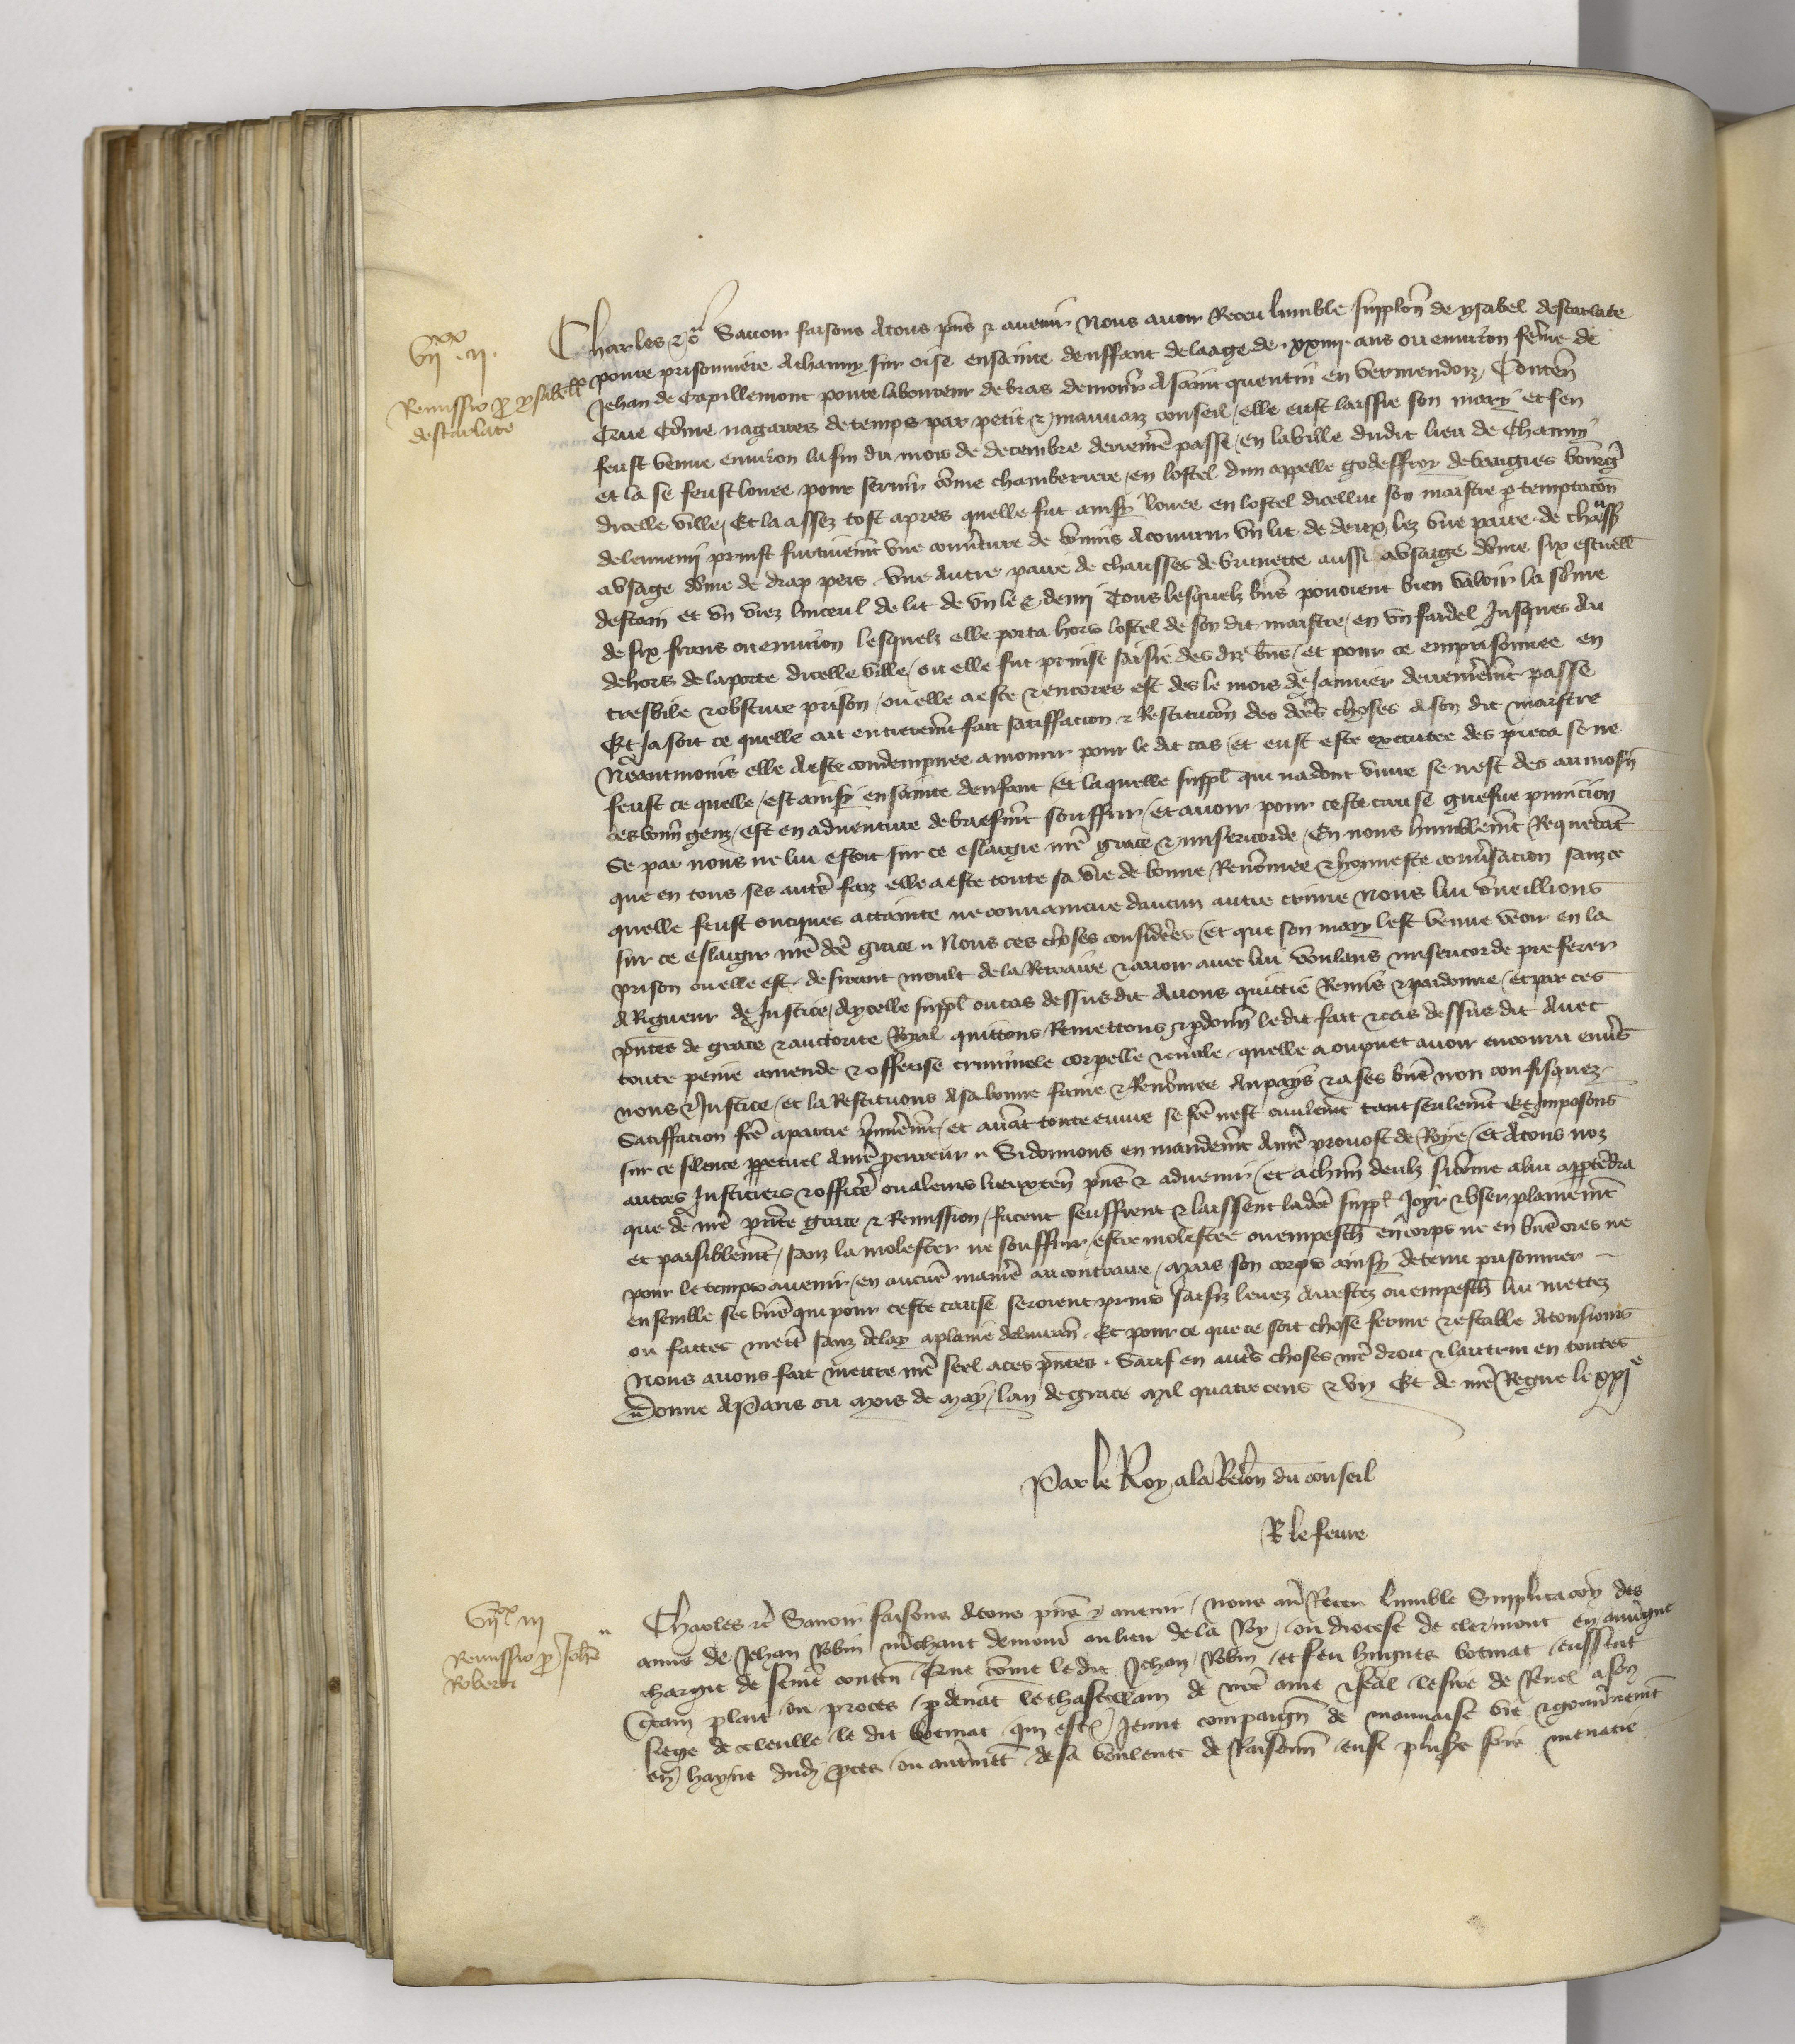 VIIxx II.
Remissio p ysabelli
descarlate
Charles etc Savoir faisons A tous pns & avenir Nous avoir Receu lumble supplon de ysabel descarlate
povre prisonniere A Channy sur oise ensainte denffant de laage de .xxiiii. ans ou environ feme de
Jehan de Capillemont povre laboureur de bras demour A saint quentin en vermendoiz, Conten
Que Come nagaires de temps par petit & mauvaiz conseil elle eust laissie son mary et sen
feust venue environ la fin du mois de decembre derrenier passe en la ville dudit lieu de Chauny
et la se feust louee pour servir come chamberiere en lostel dun appelle godeffroy de bourg
dicelle ville, Et la assez tost apres quelle fut ainsy louee en lostel dicellui son maistre p temptacon
de lennemi prinst furtivemt une couvture de connins A couvrir un lit de deux lez une paire de chauss
a usage dome de drap pers une autre paire de chausses de brunette aussi A usaige dome six escuell
destain et un viez linceul de lit de un le & demi Tous lesquelx bns povoient bien valoir la some
de six frans ou environ lesquelz elle porta hors lostel de son dit maistre en un fardel Jusques Au
dehors de la porte dicelle ville, ou elle fut prinse saisie des diz bns, et pour ce emprisonnee en
tresvile & obscure prison, ou elle a este & encores est des le mois de Janvier derrenieremt passe
Et Ja soit ce quelle ait entieremt fait satiffacion & Restitucon des dces choses A son dit maistre
Neantmoins elle A este condempnee a mourir pour le dit cas, et eust este executee des pieca se ne
feust ce quelle est ainsy ensainte denfant Et laquelle suppl qui na dont vivre se nest des aumosn
des bonn genz, est en adventure de briefmt souffrir, et avoir pour ceste cause griefve punicion
Se par nous ne lui estoit sur ce eslargie nre grace & misericorde, En nous humblemt Requerat
que en tous ses autrs faiz elle a este toute sa vie de bonne Renommee & honneste conversacion sanz ce
quelle feust oncques attainte ne convaincue daucun autre crime Nous lui vueillions
sur ce eslargir nre dce grace Nous ces choses considerees Et que son mary lest venue veoir en la
prison ou elle est desirant moult de la Retraire & avoir avec lui voulans misericorde preferer
A Rigueur de Justice, A ycelle suppl ou cas dessusdit Avons quittie Remis & pardonne, Et par ces
pntes de grace & auctorite Royal quittons Remettons & pdonn le dit fait & cas dessus dit Avec
toute peine amende & offense criminele corpelle & civile quelle a ou puet avoir encouru envers
nous & Justice, et la Restituons A sa bonne fame & Renommee Au pays & a ses biens non confisquez
Satiffacion fce a partie premieremt, et avat toute euvre se fce nest civilemt tant seulemt Et Imposons
sur ce silence ppetuel A nre procureur Si donnons en mandemt A nre prevost de Roye, Et A tous noz
autres Justiciers & officrs ou a leurs lieuxten pns & advenir, et a chun deulx si come a lui apptendra
que de nre pnte grace & Remission, facent seuffrent & laissent la dce suppl Joyr & user plainemt
et paisiblemt, sanz la molester ne souffrir estre molestee ou empesch en corps ne en bns ores ne
pour le temps avenir, en aucune maniere au contraire, Mais son corps ainsy detenu prisonnier
ensemble ses bns qui pour ceste cause seroient prins saisiz levez Arrestez ou empesch lui mettez
ou faites mett sanz delay a plaine delivran. Et pour ce que ce soit chose ferme & estable A tousjours
Nous avons fait mettre nre seel a ces pntes. Sauf en autrs choses nre droit & lautrui en toutes
Donne A Paris ou mois de May, lan de grace Mil quatre cens & un Et de nre Regne le xxje
Par le Roy a la Relon du conseil
R lefevre
VIIxx III
Remissio p Johe
Roberti
Charles etc Savoir faisons A tous pns & avenir, nous avr Receu lumble Supplicacion des
amis de Jehan Robin mchant demour au lieu de la , ou diocese de clermont en auvgne
chargie de feme conten Que come le dit Jehan Robin, et feu hugues boemat eussent
plait ou proces, p devat le chastellain de nre ame & feal le sire de Revel a son
siege de le dit boemat qui est Jeune compaign de mauvaise vie & gouvnemt
en hayne dudit proces, ou autremt de sa voulente de Raisonn eust plusrs fois menacie